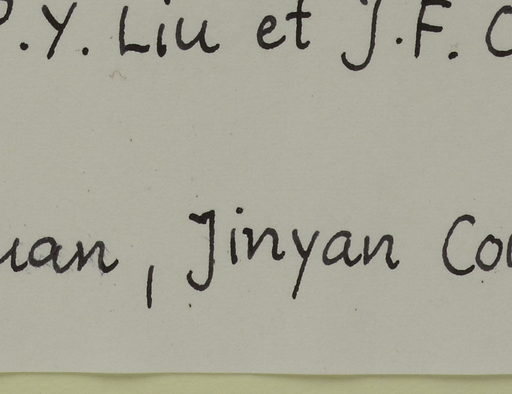 P.Y. Liu et J.F. C
uan, Jinyan Cou